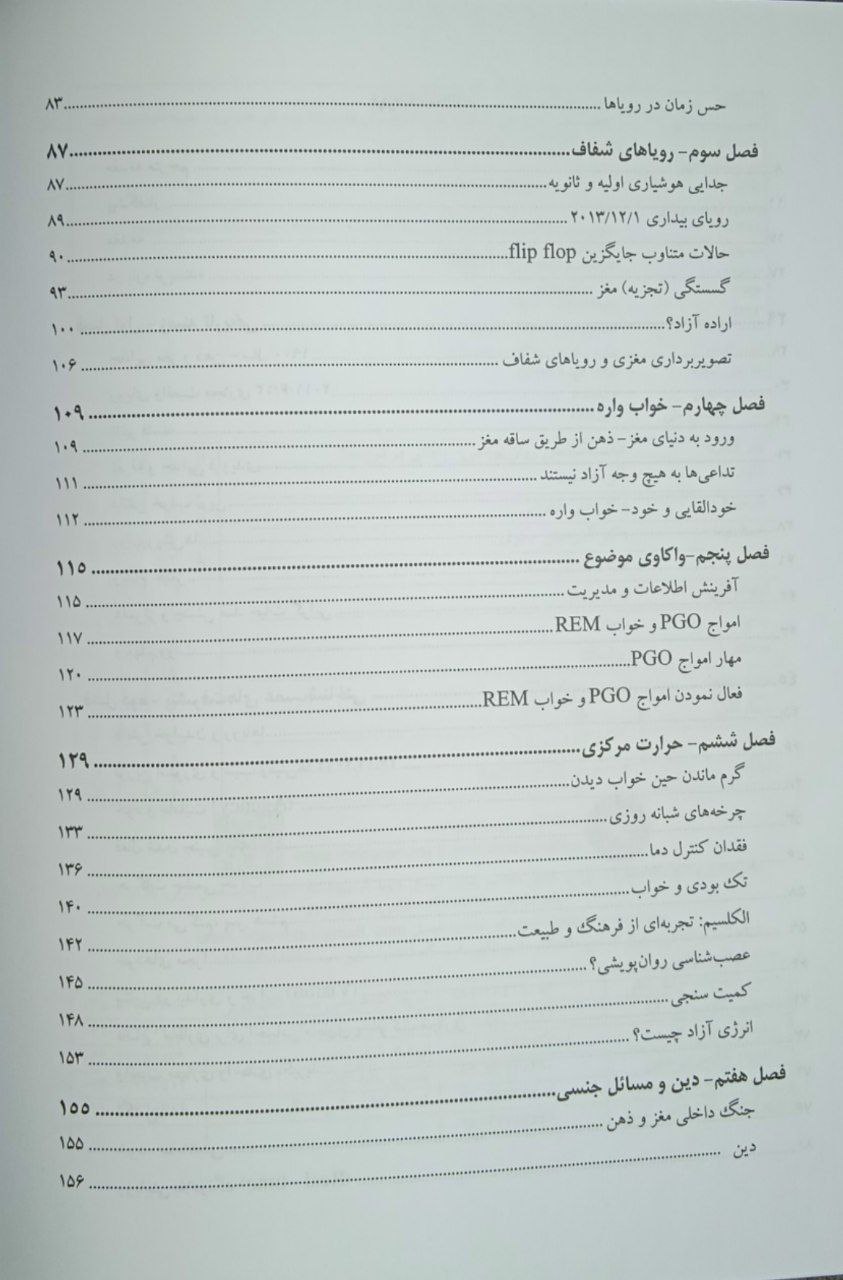 حس زمان در رویاها ........ ۸۳
فصل سوم- رویاهای شفاف ........ ۸۷
جدایی هوشیاری اولیه و ثانویه ........ ۸۷
رویای بیداری ۲۰۱۳/۱۲/۱ ........ ۸۹
حالات متناوب جایگزین flip flop ........ ۹۰
گسستگی (تجزیه) مغز ........ ۹۳
اراده آزاد؟ ........ ۱۰۰
تصویربرداری مغزی و رویاهای شفاف ........ ۱۰۶
فصل چهارم- خواب واره ........ ۱۰۹
ورود به دنیای مغز- ذهن از طریق ساقه مغز ........ ۱۰۹
تداعی‌ها به هیچ وجه آزاد نیستند ........ ۱۱۱
خودالقایی و خود- خواب واره ........ ۱۱۲
فصل پنجم-واکاوی موضوع ........ ۱۱۵
آفرینش اطلاعات و مدیریت ........ ۱۱۵
امواج PGO و خواب REM ........ ۱۱۷
مهار امواج PGO ........ ۱۲۰
فعال نمودن امواج PGO و خواب REM ........ ۱۲۳
فصل ششم- حرارت مرکزی ........ ۱۲۹
گرم ماندن حین خواب دیدن ........ ۱۲۹
چرخه‌های شبانه روزی ........ ۱۳۳
فقدان کنترل دما ........ ۱۳۶
تک بودی و خواب ........ ۱۴۰
الکلسیم: تجربه‌ای از فرهنگ و طبیعت ........ ۱۴۲
عصب‌شناسی روان‌پویشی؟ ........ ۱۴۵
کمیت سنجی ........ ۱۴۸
انرژی آزاد چیست؟ ........ ۱۵۳
فصل هفتم- دین و مسائل جنسی ........ ۱۵۵
جنگ داخلی مغز و ذهن ........ ۱۵۵
دین ........ ۱۵۶